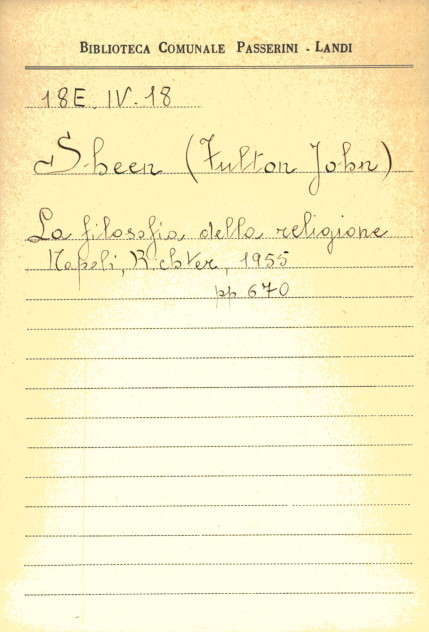 BIBLIOTECA COMUNALE PASSERINI - LANDI
18E. IV. 18
Sheen (Fulton John)
La filosofia della religione
Napoli, Richter, 1955
pp 670